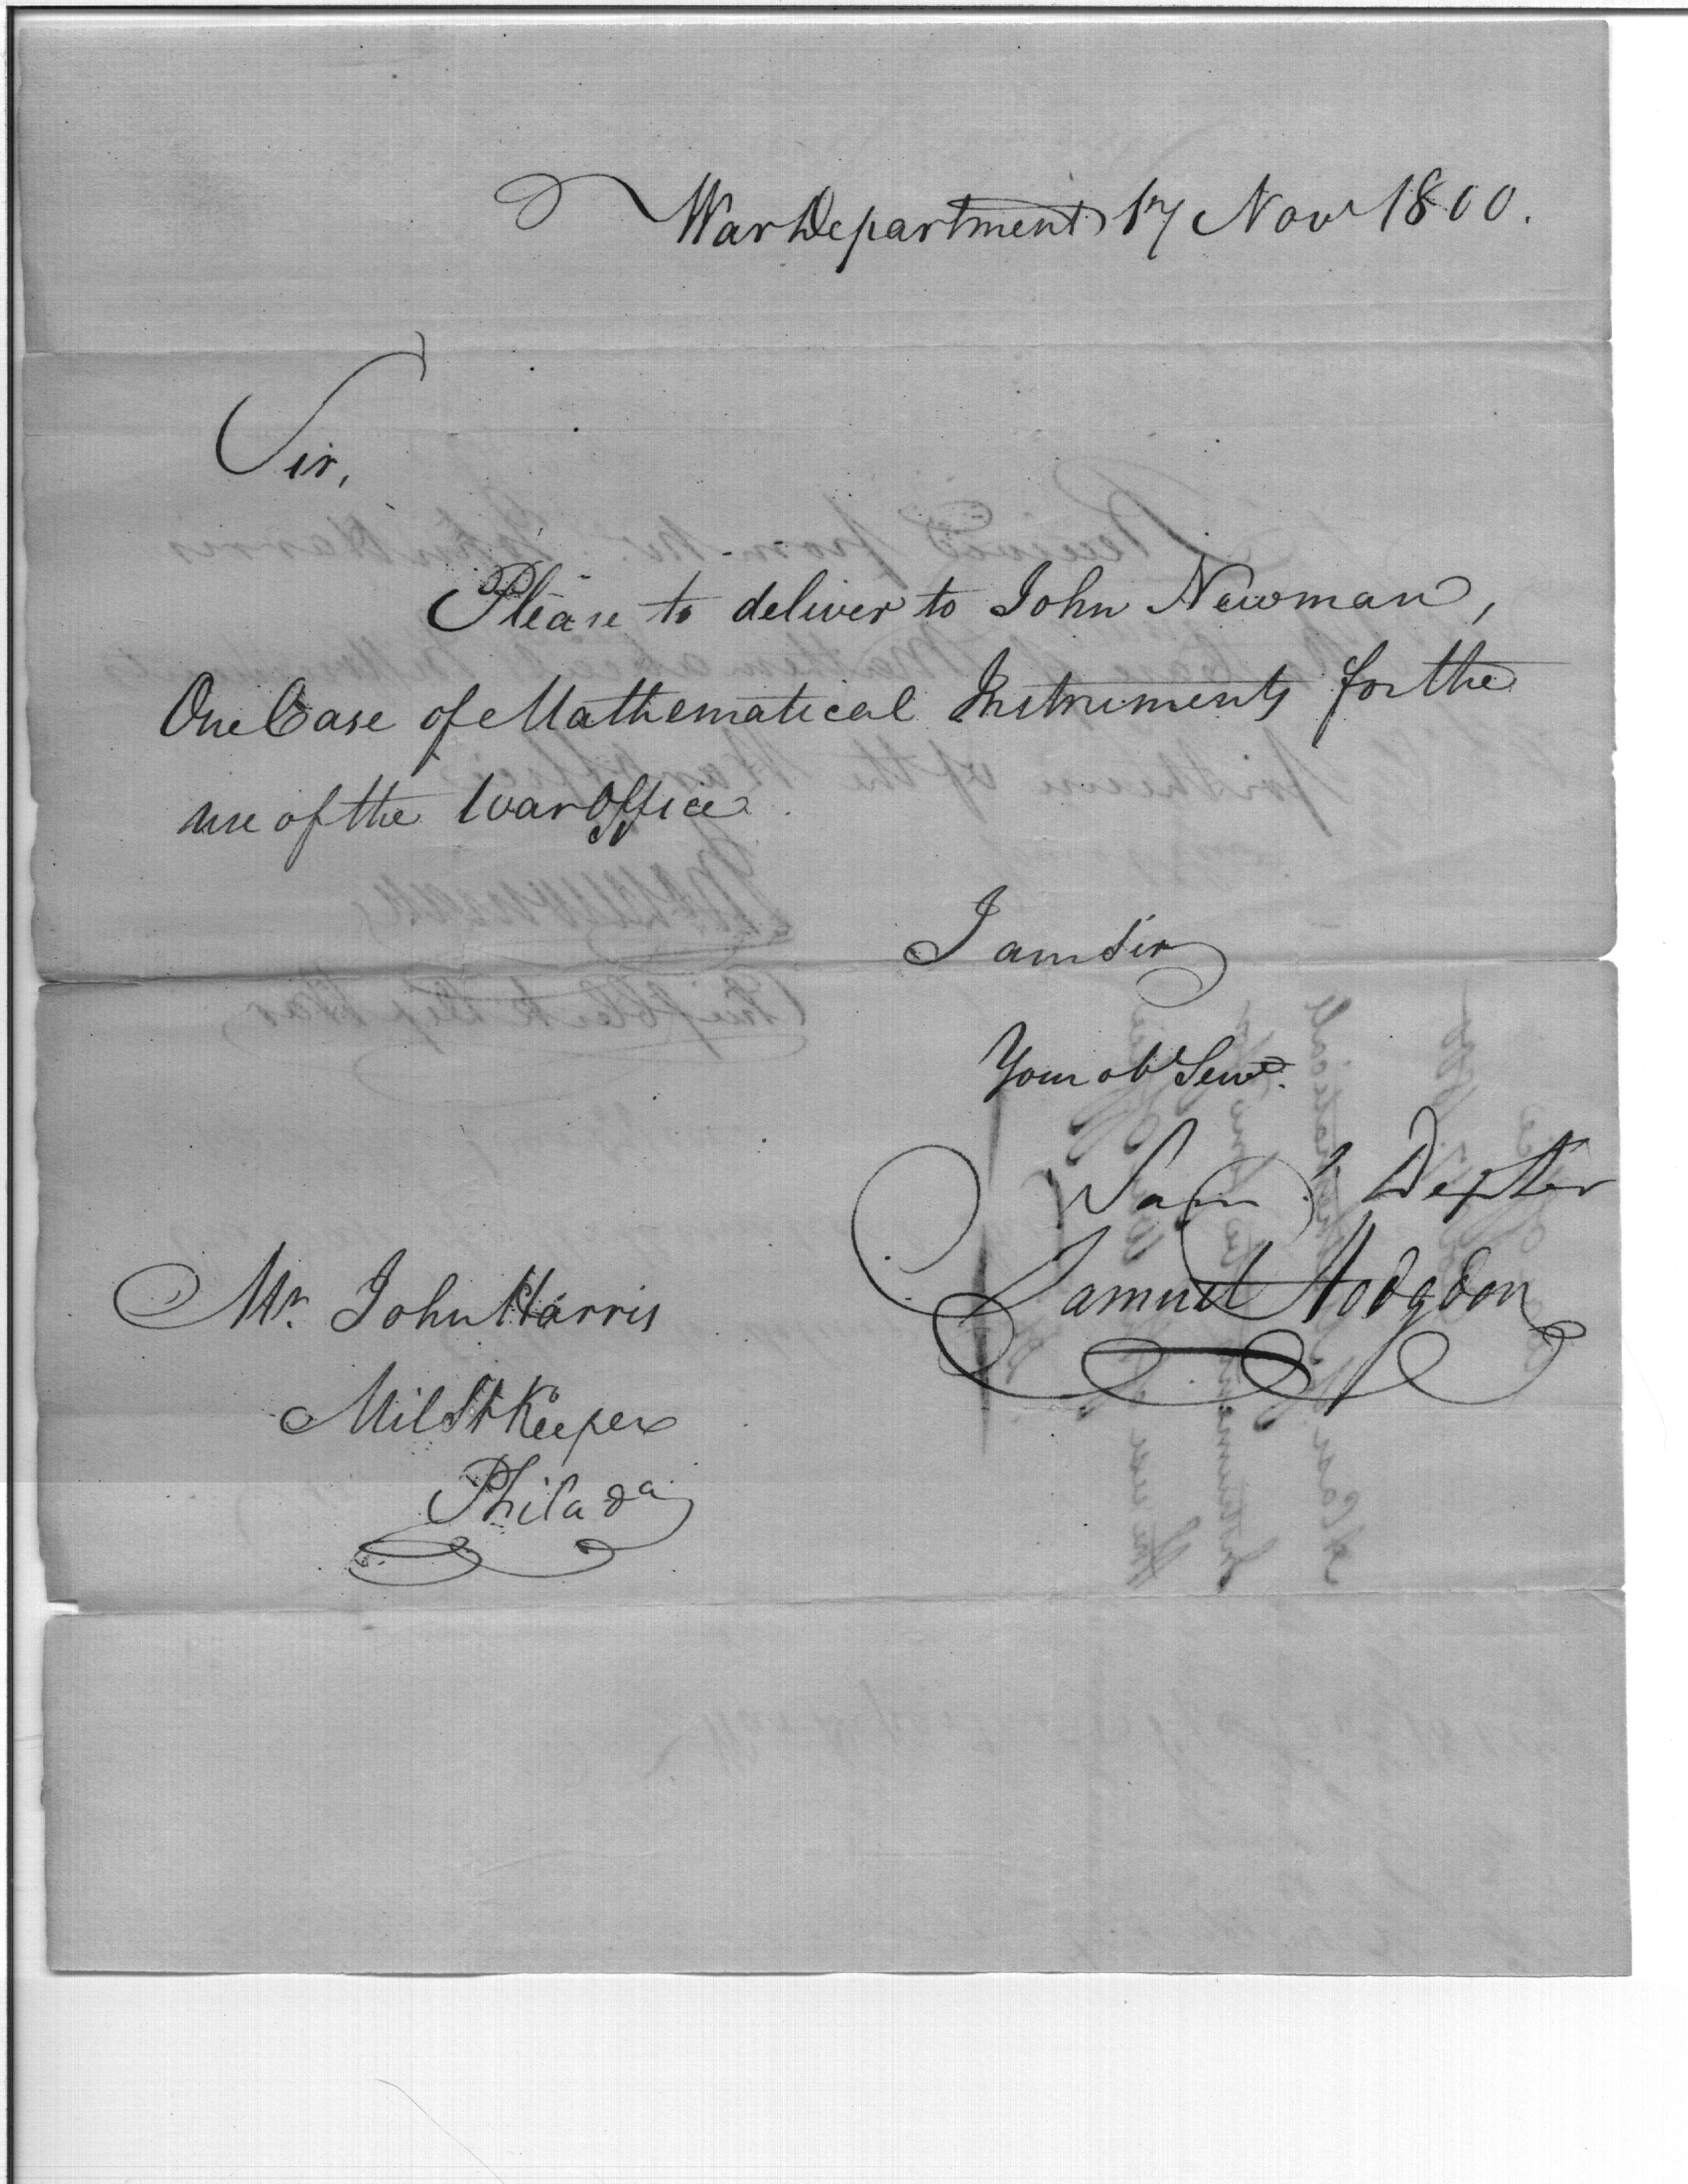 War Department 17 Nov 1800.
Sir,
Please to deliver to John Newman,
One Case of Mathematical Instruments for the
use of the War Office
I am Sir
Your obt Servt.
Saml. Dexter
Samuel Hodgdon
Mr. John Harris
Mil St Keeper
Philada